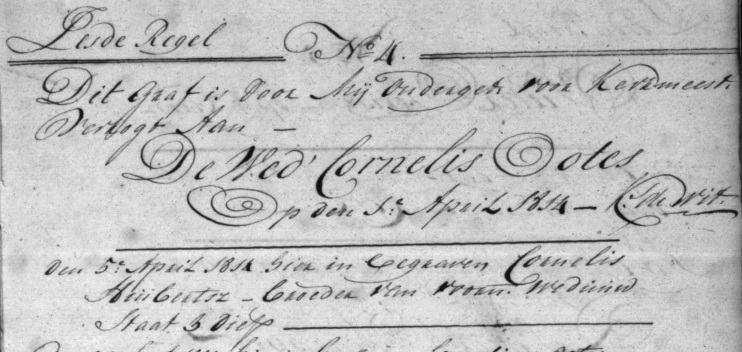 Sesde Regel No 4.
Dit Graf is Door Mij Onderget: voor Kerkmeest:
Verkogt Aan —
De Wed' Cornelis Ootes
Op den 5e April 1814 — K: J de Wit.
den 5e April 1814 hier in begraaven Cornelis
Huibertsz - broeder van voorn: Weduwe
Staat 3 Diep